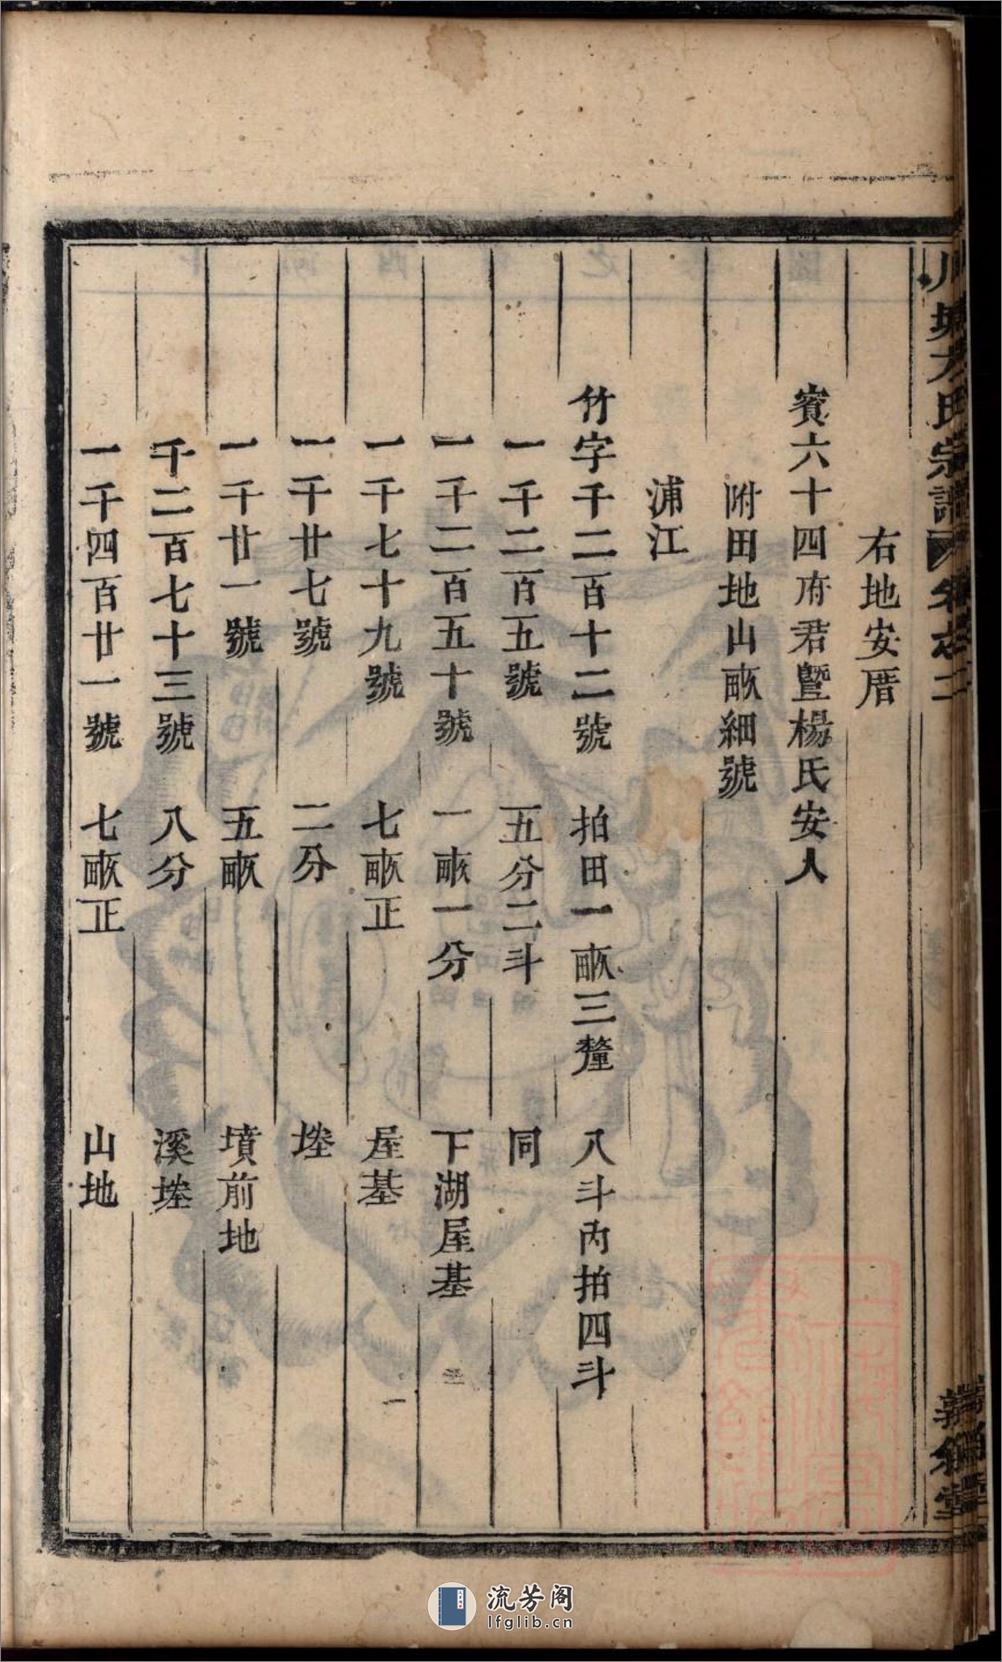 右地安厝
賓六十四府君暨楊氏安人
附田地山畝細號
浦江
竹字千二百十二號 拍田一畝三釐 八斗內拍四斗
一千二百五號 五分二斗 同
一千二百五十號 一畝一分 下湖屋基
一千七十九號 七畝正 屋基
一千廿七號 二分 塋
一千廿一號 五畝 墳前地
千二百七十三號 八分 溪塋
一千四百廿一號 七畝正 山地
方氏宗譜
流芳阁
lfglib.cn